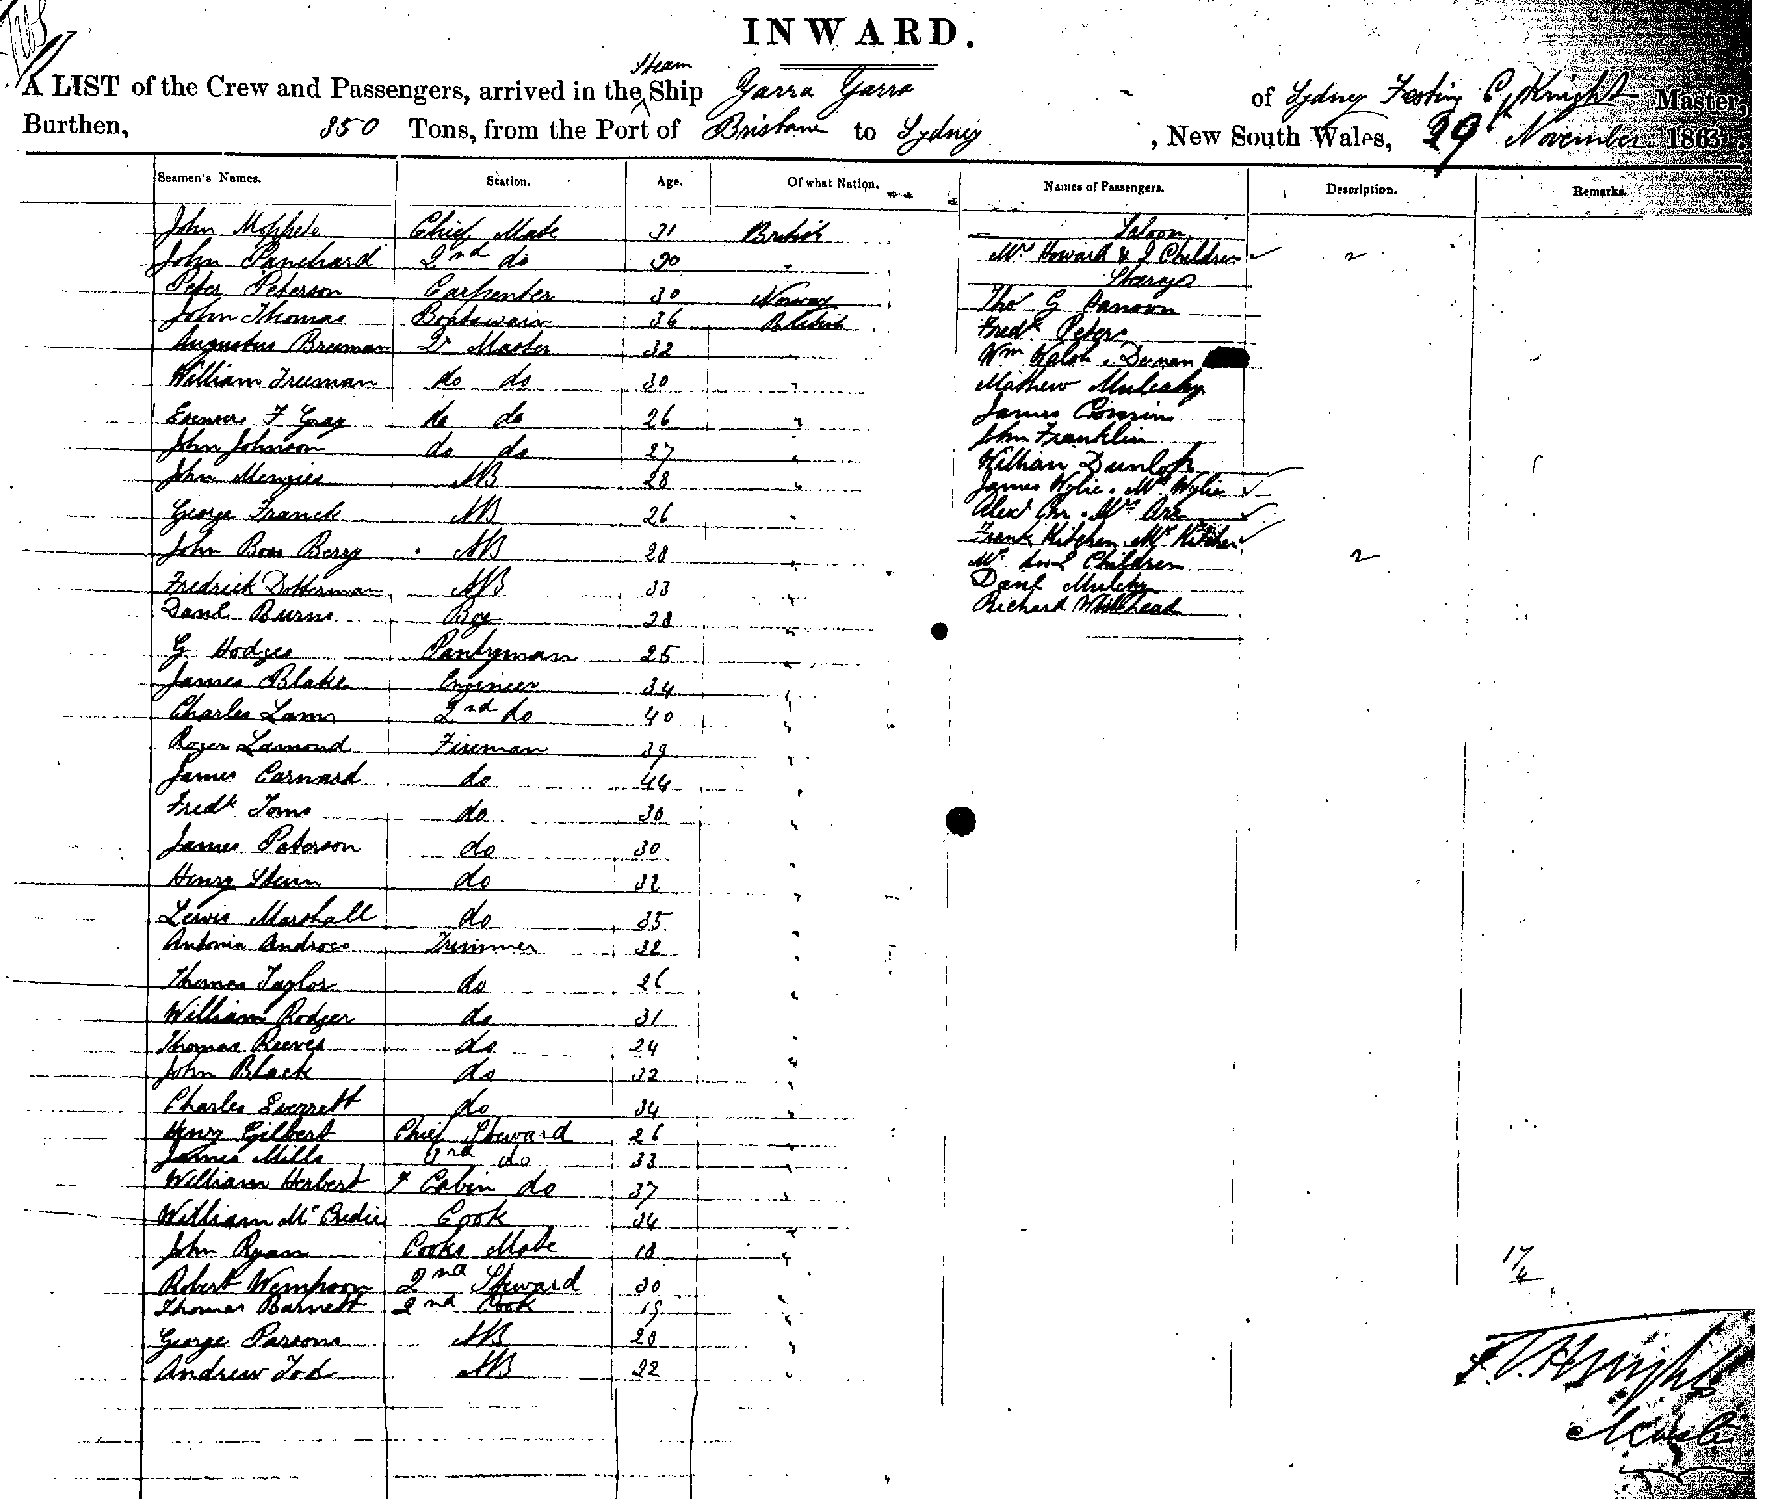 INWARD.
A LIST of the Crew and Passengers, arrived in the Steam Ship Yarra Yarra of Sydney Festing C. Knight Master,
Burthen, 350 Tons, from the Port of Brisbane to Sydney, New South Wales, 29 November 1863
Seamen's Names. Station. Age. Of what Nation. Names of Passengers. Description. Remarks.
John Chief Mate 31 British Saloon
John Panchard 2nd do 30 " Mrs Howard & 2 Children 2
Peter Peterson Carpenter 30 Norway Steerage
John Thomas Boatswain 36 British Thos G
Augustus 2r Master 32 Fredk Peters
William Freeman do do 30 " Wm Walsh.
F Gray do do 26 " Mathew Mulcahy
John Johnson do do 27 " James
John Menzies AB 28 " John Franklin
George Franck AB 26 " William Dunlop
John Ross Berry AB 28 " James Wylie. Mrs Wylie
Fredrick Dotterman AB 33 " Alexr Orr. Mrs Orr
Danl Burns Boy 28 " Frank Kitchen, Mrs Kitchen
G Hodges Pantryman 25 " Mrs and 2 Children 2
James Blake Engineer 34 " Danl Mulchy
Charles Lamn 2nd do 40 " Richard Whitehead
Roger Lamond Fireman 39 "
James Carnard do 44 "
Fredk Toms do 30 "
James Paterson do 30 "
Henry do 32 "
Lewis Marshall do 35 "
Antonia Androes Trimmer 32 "
Thomas Taylor do 26 "
William Rodger do 31 "
Thomas Reeves do 24 "
John Black do 32 "
Charles Everrett do 34 "
Henry Gilbert Chief Steward 26 "
James Mills do 33 "
William Herbert F Cabin do 37 "
William Mc Cook 34 "
John Ryan Cooks Mate 18 "
Robert 2nd Steward 30 "
Thomas Barnett 2nd Cook 19 "
George Parsons AB 20 "
Andrew Tod AB 22 "
17/4
F. C. Knight
Master